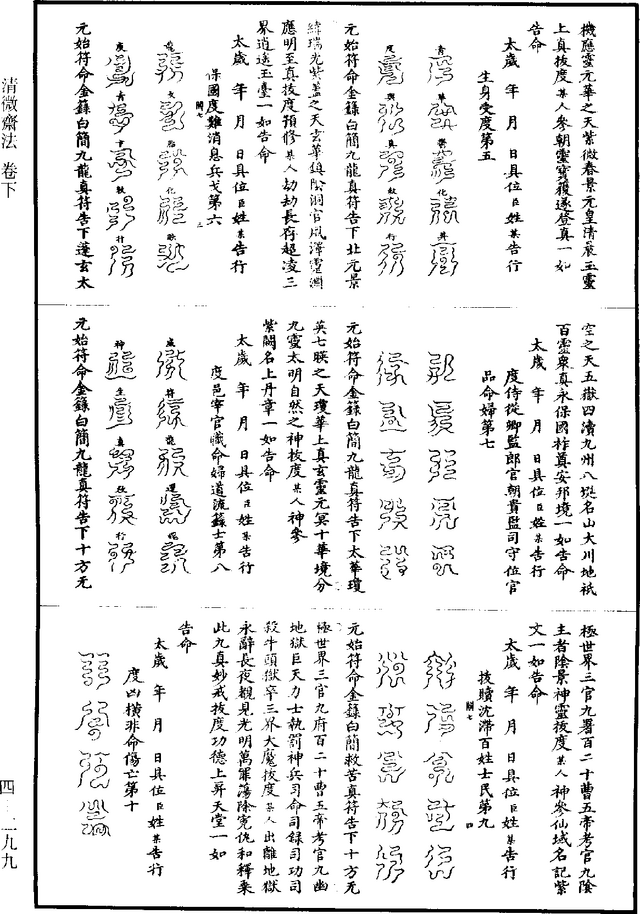 清微齋法 卷下
機應靈元華之天紫微春景元皇清晨玉靈
上真拔度某人參朝靈寶覆遂登真一如
告命
太歲 年 月 日具位臣姓某告行
生身受度第五
青 華 鬱 化 昇
度 與 真 敕 行
元始符命金籙白簡九龍真符告下北元景
緯瑞光紫蓋之天玄華鎮陰洞官風澤靈淵
應明至真拔度預修某人劫劫長存超凌三
界逍遙玉臺一如告命
太歲 年 月 日具位臣姓某告行
保國度難消息兵戈第六
元始符命金籙白簡九龍真符告下蓬玄太
空之天五嶽四瀆九州八埏名山大川地祇
百靈衆真永保國祚奠安邦境一如告命
太歲 年 月 日具位臣姓某告行
度侍從卿監郎官朝貴監司守位官
品命婦第七
元始符命金籙白簡九龍真符告下太華瓊
英七暎之天瓊華上真玄靈元冥十華境分
九靈太明自然之神拔度某人神參
紫闕名上丹章一如告命
太歲 年 月 日具位臣姓某告行
度邑宰官職命婦道流籙士第八
元始符命金籙白簡九龍真符告下十方无
極世界三官九署百二十曹五帝考官九陰
主者陰景神靈拔度某人神參仙域名記紫
文一如告命
太歲 年 月 日具位臣姓某告行
拔贖沈滯百姓士民第九
元始符命金籙白簡救苦真符告下十方无
極世界三官九府百二十曹五帝考官九幽
地獄巨天力士執罰神兵司命司錄司功司
殺牛頭獄卒三界大魔拔度某人出離地獄
永辭長夜覩見光明萬罪蕩除冤仇和釋乘
此九真妙戒拔度功德上昇天堂一如
告命
太歲 年 月 日具位臣姓某告行
度凶橫非命傷亡第十
四—二九九